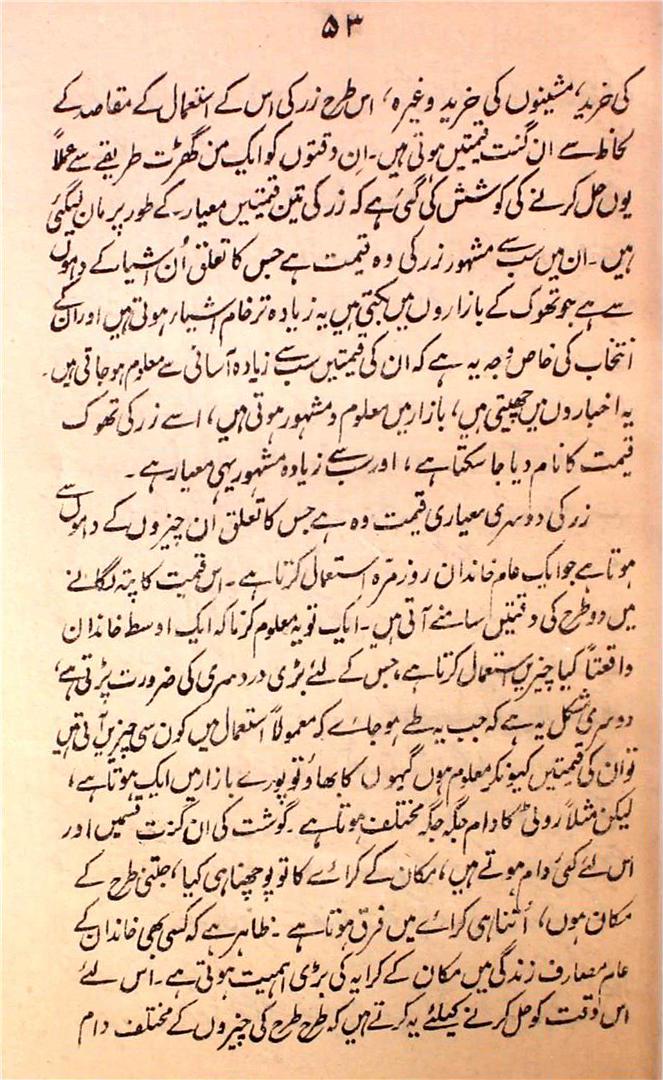 ۵۳
کی خرید، مشینوں کی خرید وغیرہ، اس طرح زر کی اس کے استعمال کے مقاصد کے
لحاظ سے ان گنت قیمتیں ہوتی ہیں۔ اِن دقتوں کو ایک من گھڑت طریقے سے عملاً
یوں حل کرنے کی کوشش کی گئی ہے کہ زر کی تین قیمتیں معیار کے طور پر مان لی گئی
ہیں۔ ان میں سب سے مشہور زر کی وہ قیمت ہے جس کا تعلق اُن اشیاء کے داموں
سے ہے جو تھوک کے بازاروں میں بکتی ہیں یہ زیادہ تر خام اشیاء ہوتی ہیں اور ان کے
انتخاب کی خاص وجہ یہ ہے کہ ان کی قیمتیں سب سے زیادہ آسانی سے معلوم ہو جاتی ہیں۔
یہ اخباروں میں چھپتی ہیں، بازار میں معلوم و مشہور ہوتی ہیں، اسے زر کی تھوک
قیمت کا نام دیا جا سکتا ہے، اور سب سے زیادہ مشہور یہی معیار ہے۔
زر کی دوسری معیاری قیمت وہ ہے جس کا تعلق اُن چیزوں کے داموں سے
ہوتا ہے جو ایک عام خاندان روز مرّہ استعمال کرتا ہے۔ اس قیمت کا پتہ لگانے
میں دو طرح کی دقتیں سامنے آتی ہیں۔ ایک تو یہ معلوم کرنا کہ ایک اوسط خاندان
واقعتاً کیا چیزیں استعمال کرتا ہے، جس کے لئے بڑی دردسری کی ضرورت پڑتی ہے،
دوسری مشکل یہ ہے کہ جب یہ طے ہو جائے کہ معمولاً استعمال میں کون سی چیزیں آتی ہیں
تو ان کی قیمتیں کیونکر معلوم ہوں گیہوں کا بھاؤ تو پورے بازار میں ایک ہوتا ہے،
لیکن مثلاً روٹی کا دام جگہ جگہ مختلف ہوتا ہے۔ گوشت کی ان گنت قسمیں اور
اس لئے کئی دام ہوتے ہیں، مکان کے کرائے کا تو پوچھنا ہی کیا، جتنی طرح کے
مکان ہوں، اُتنا ہی کرائے میں فرق ہوتا ہے۔ ظاہر ہے کہ کسی بھی خاندان کے
عام مصارف زندگی میں مکان کے کرایہ کی بڑی اہمیت ہوتی ہے۔ اس لئے
اس دقت کو حل کرنے کیلئے یہ کرتے ہیں کہ طرح طرح کی چیزوں کے مختلف دام